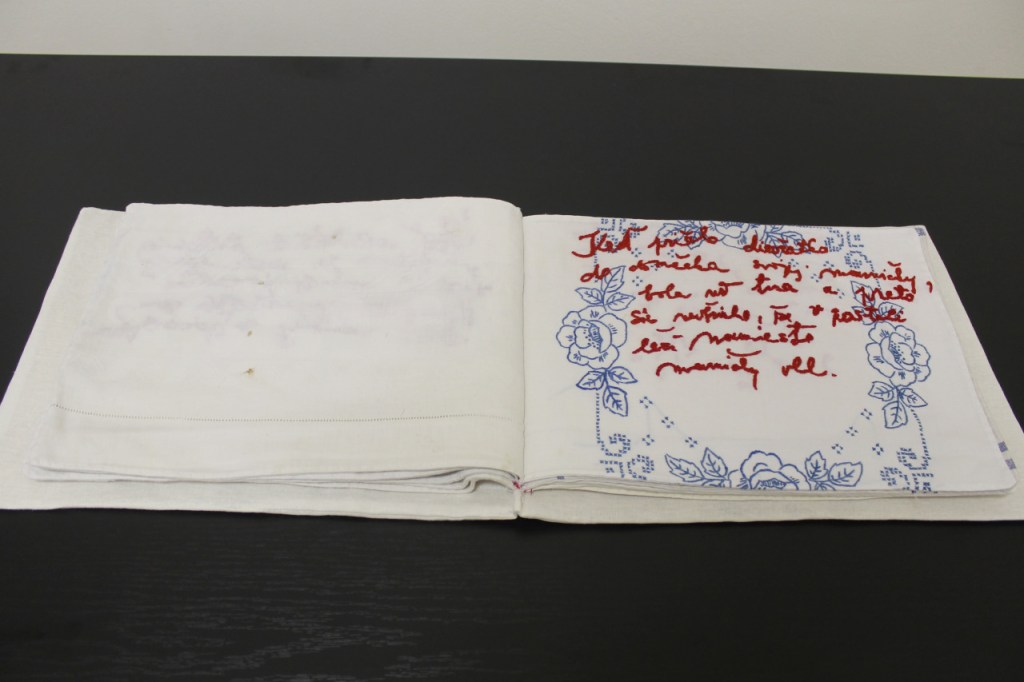 Keď prišlo dievčatko
do domčeka svojej mamičky,
bola už tma a preto
si nevšimlo, že v posteli
leží namiesto
mamičky vlk.